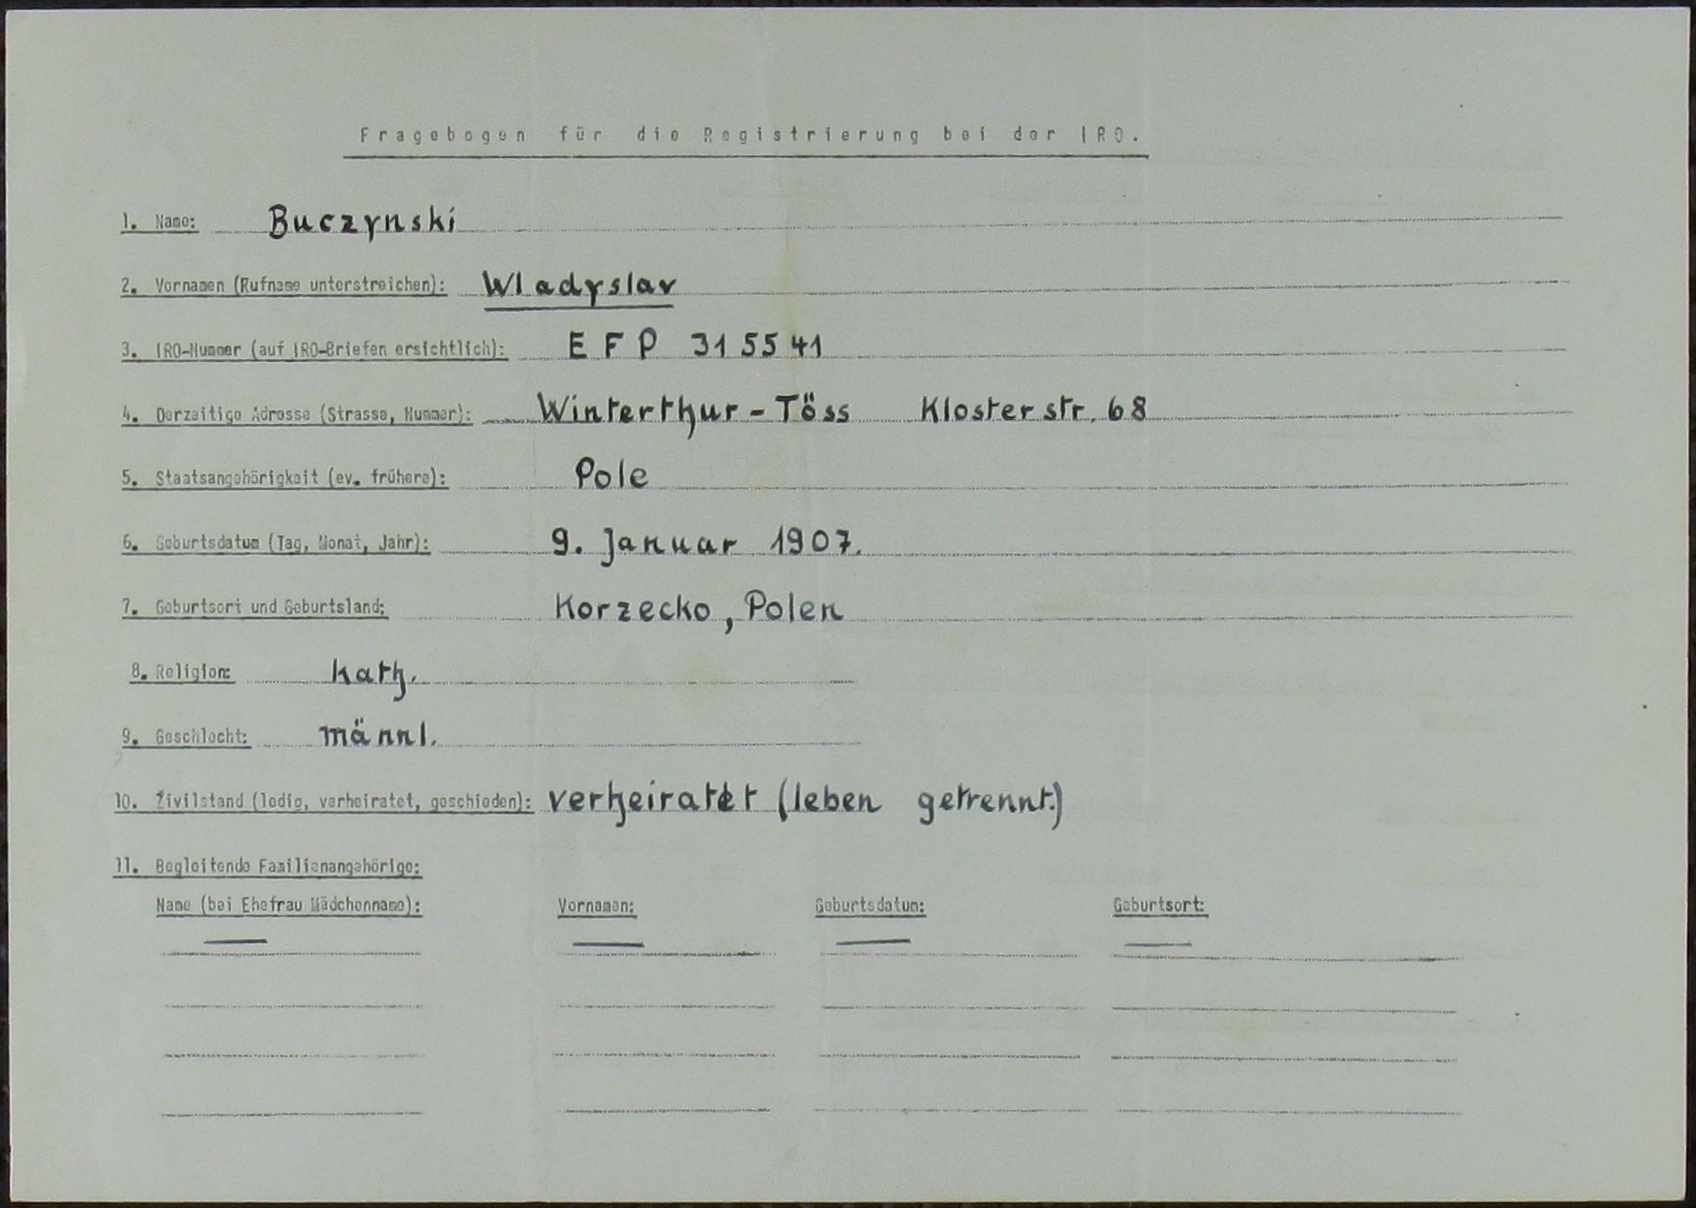 Fragebogen für die Registrierung bei der IRO.
1. Name: Buczynski
2. Vornamen (Rufname unterstreichen): Wladyslav
3. IRO-Nummer (auf IRO-Briefen ersichtlich): EFP 315541
4. Derzeitige Adresse (Strasse, Nummer): Winterthur-Töss Klosterstr. 68
5. Staatsangehörigkeit (ev. frühere): Pole
6. Geburtsdatum (Tag, Monat, Jahr): 9. Januar 1907.
7. Geburtsort und Geburtsland: Korzecko, Polen
8. Religion: kath.
9. Geschlecht: männl.
10. Zivilstand (ledig, verheiratet, geschieden): verheiratet (leben getrennt)
11. Begleitende Familienangehörige:
Name (bei Ehefrau Mädchenname): Vornamen: Geburtsdatum: Geburtsort:
— — — —